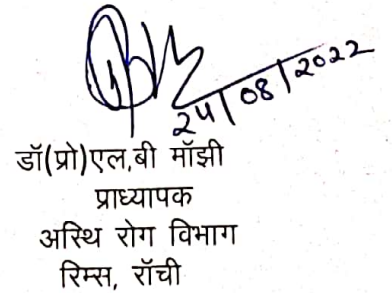 24/08/2022
डॉ(प्रो)एल,बी मॉझी
प्राध्यापक
अस्थि रोग विभाग
रिम्स, रॉची